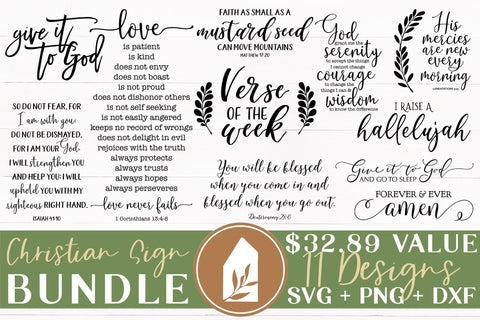 give it
to God
love
is patient
is kind
does not envy
does not boast
is not proud
does not dishonor others
is not self seeking
is not easily angered
keeps no record of wrongs
does not delight in evil
rejoices with the truth
always protects
always trusts
always hopes
always perseveres
love never fails
1 Corinthians 13:4-8
FAITH AS SMALL AS A
mustard seed
CAN MOVE MOUNTAINS
MATTHEW 17:20
God
grant me the
serenity
to accept the things
I cannot change
courage
to change the
things I can &
wisdom
to know the difference
His
mercies
are new
every
morning
LAMENTATIONS 3:23
SO DO NOT FEAR, FOR
I am with you;
DO NOT BE DISMAYED,
FOR I AM YOUR God.
I WILL strengthen YOU
AND HELP YOU; I WILL
uphold YOU WITH MY
righteous RIGHT HAND.
ISAIAH 41:10
Verse
OF THE
week
I RAISE A
hallelujah
You will be blessed
when you come in and
blessed when you go out.
Deuteronomy 28:6
Give it to God
AND GO TO SLEEP
FOREVER & EVER
amen
Christian Sign
BUNDLE
$32.89 VALUE
11 Designs
SVG + PNG + DXF